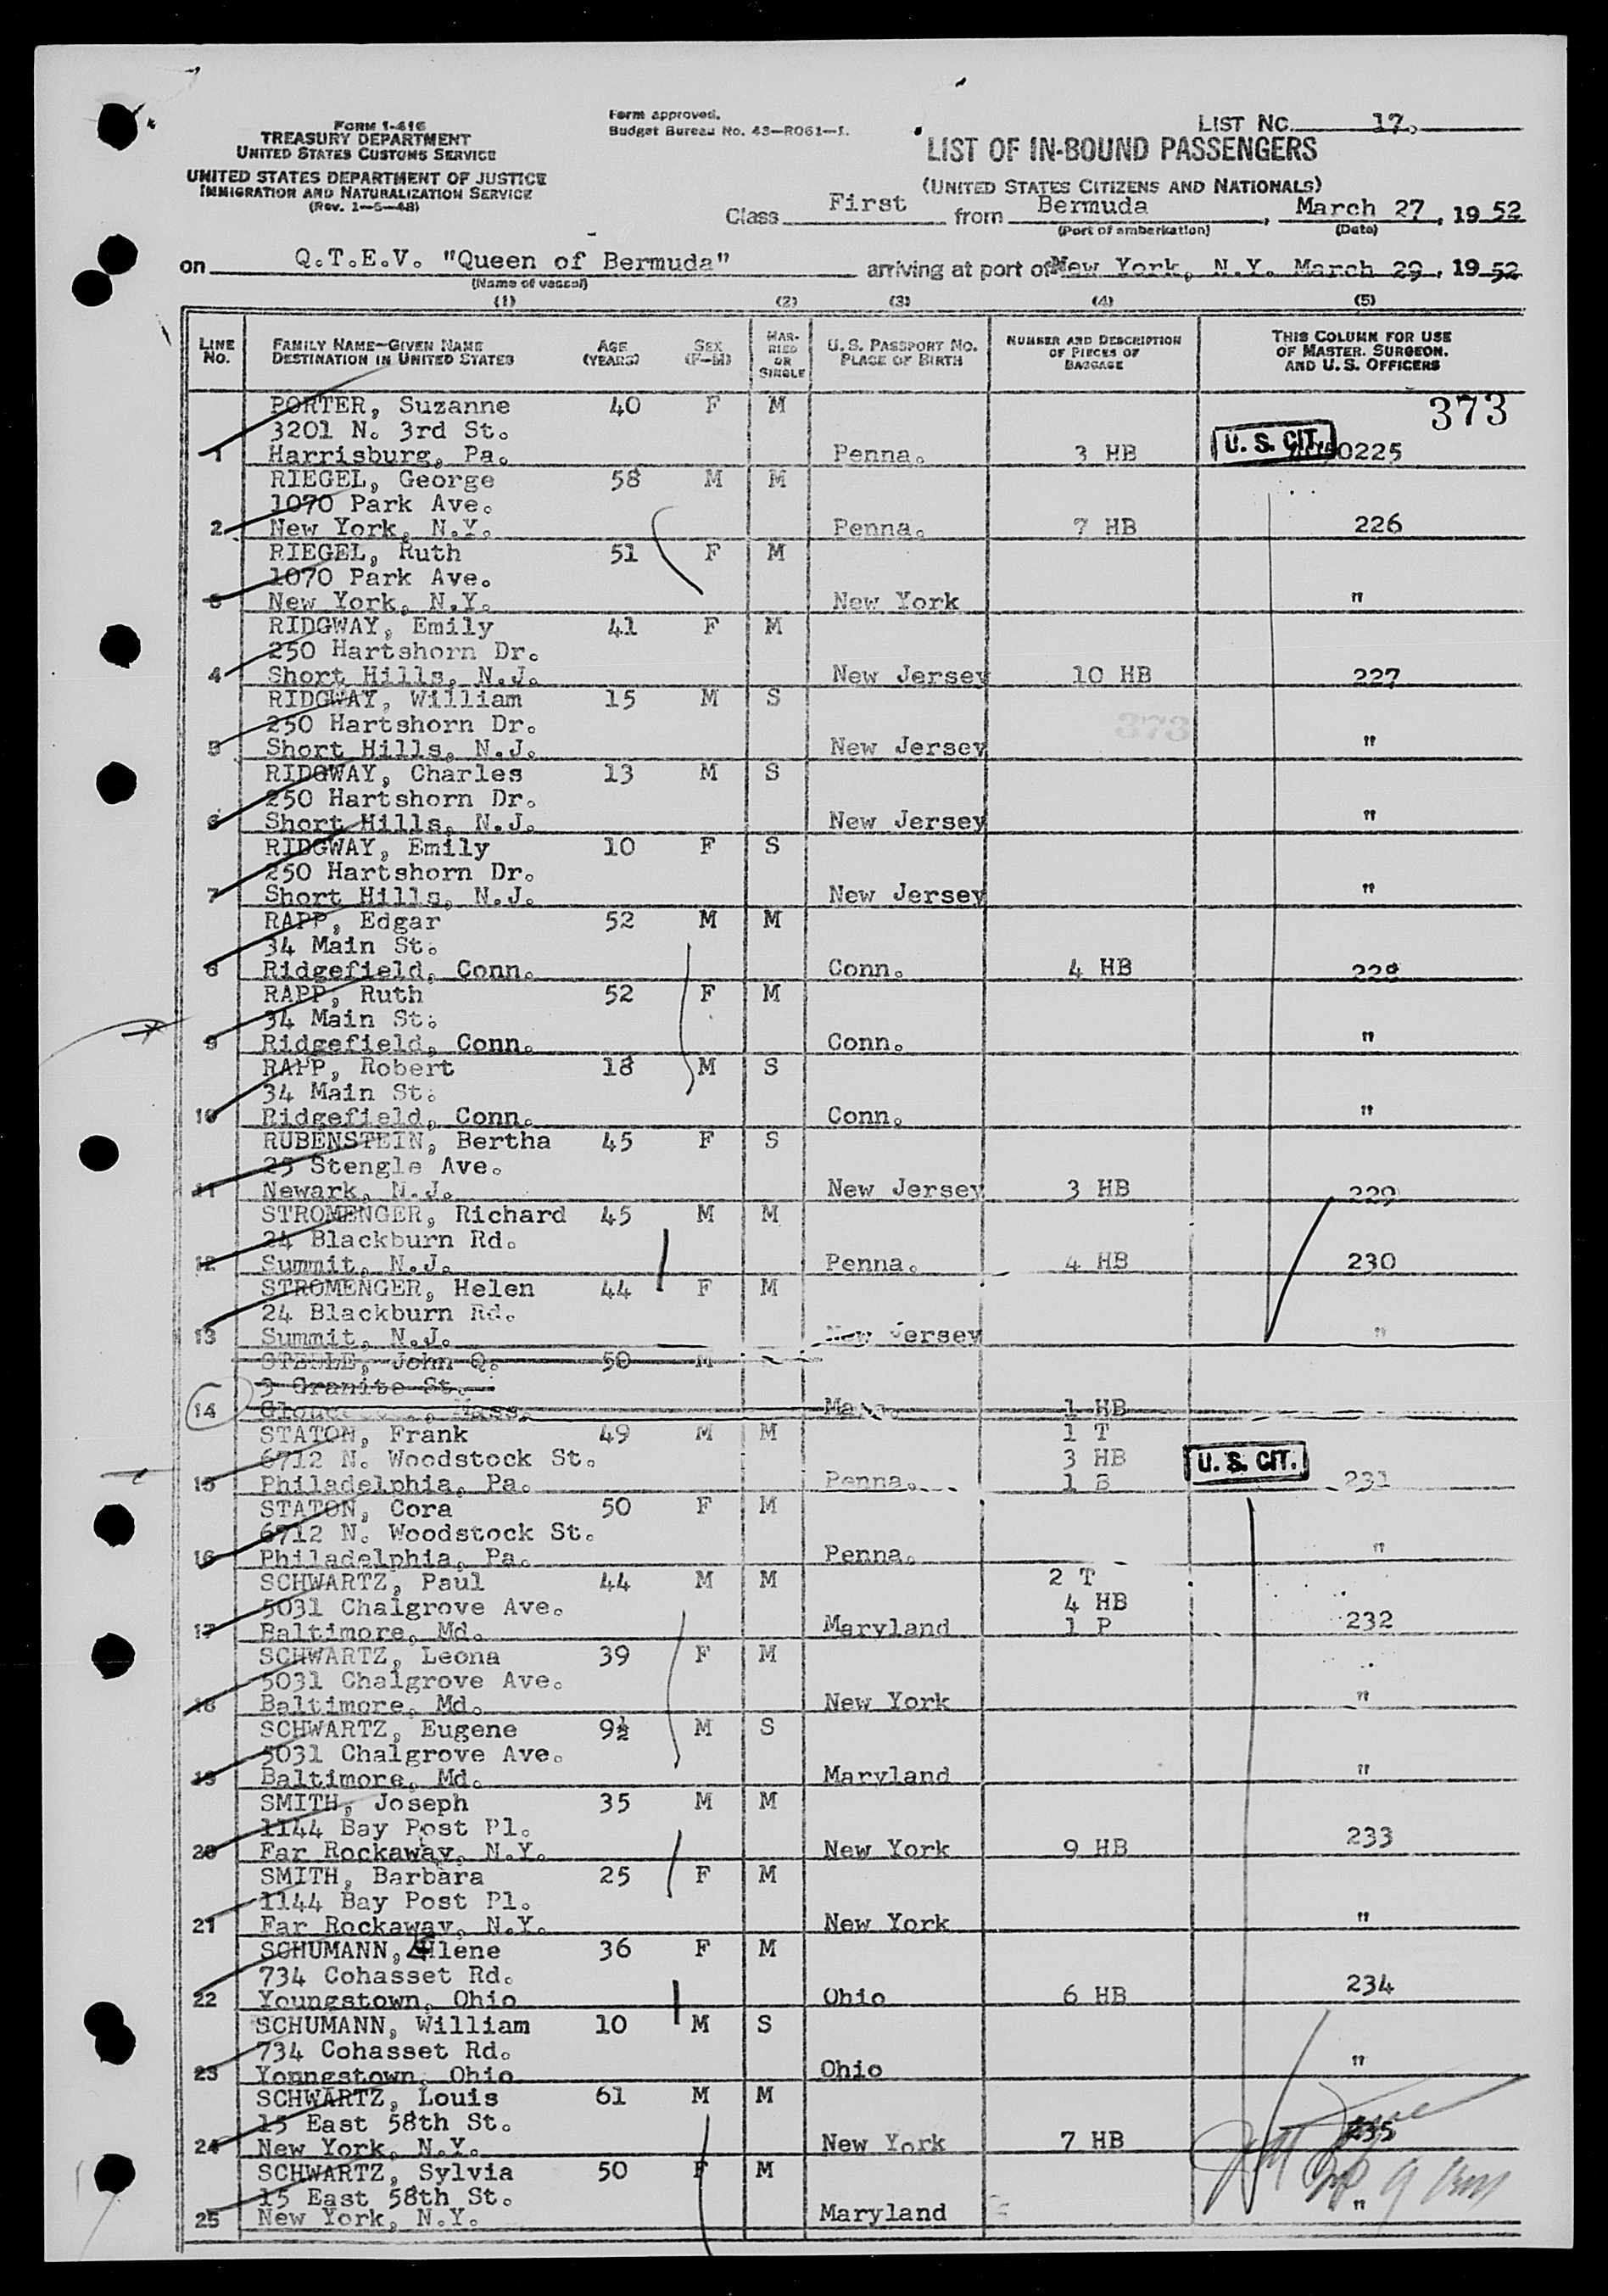 FORM I-416
TREASURY DEPARTMENT
UNITED STATES CUSTOMS SERVICE
UNITED STATES DEPARTMENT OF JUSTICE
IMMIGRATION AND NATURALIZATION SERVICE
(Rev. 1-5-48)
Form approved.
Budget Bureau No. 43-R061-1.
LIST NO. 17.
LIST OF IN-BOUND PASSENGERS
(UNITED STATES CITIZENS AND NATIONALS)
Class First from Bermuda, March 27, 19 52
(Port of embarkation) (Date)
on Q.T.E.V. "Queen of Bermuda" arriving at port of New York, N.Y. March 29, 19 52
(Name of vessel)
(1) (2) (3) (4) (5)
LINE NO. FAMILY NAME-GIVEN NAME DESTINATION IN UNITED STATES AGE (YEARS) SEX (F-M) MARRIED OR SINGLE U.S. PASSPORT NO. PLACE OF BIRTH NUMBER AND DESCRIPTION OF PIECES OF BAGGAGE THIS COLUMN FOR USE OF MASTER. SURGEON. AND U.S. OFFICERS
PORTER, Suzanne 40 F M 373
3201 N. 3rd St.
1 Harrisburg, Pa. Penna. 3 HB U. S. CIT. 0225
RIEGEL, George 58 M M
1070 Park Ave.
2 New York, N.Y. Penna. 7 HB 226
RIEGEL, Ruth 51 F M
1070 Park Ave.
3 New York, N.Y. New York "
RIDGWAY, Emily 41 F M
250 Hartshorn Dr.
4 Short Hills, N.J. New Jersey 10 HB 227
RIDGWAY, William 15 M S
250 Hartshorn Dr. 373
5 Short Hills, N.J. New Jersey "
RIDGWAY, Charles 13 M S
250 Hartshorn Dr.
6 Short Hills, N.J. New Jersey "
RIDGWAY, Emily 10 F S
250 Hartshorn Dr.
7 Short Hills, N.J. New Jersey "
RAPP, Edgar 52 M M
34 Main St.
8 Ridgefield, Conn. Conn. 4 HB 228
RAPP, Ruth 52 F M
34 Main St.
9 Ridgefield, Conn. Conn. "
RAPP, Robert 18 M S
34 Main St.
10 Ridgefield, Conn. Conn. "
RUBENSTEIN, Bertha 45 F S
25 Stengle Ave.
11 Newark, N.J. New Jersey 3 HB 229
STROMENGER, Richard 45 M M
24 Blackburn Rd.
12 Summit, N.J. Penna. 4 HB 230
STROMENGER, Helen 44 F M
24 Blackburn Rd.
13 Summit, N.J. New Jersey "
STEELE, John Q. 50 M
3 Granite St.
14 Mass. 1 HB
STATON, Frank 49 M M 1 T
6712 N. Woodstock St. 3 HB U. S. CIT.
15 Philadelphia, Pa. Penna. 1 B 231
STATON, Cora 50 F M
6712 N. Woodstock St.
16 Philadelphia, Pa. Penna. "
SCHWARTZ, Paul 44 M M 2 T
5031 Chalgrove Ave. 4 HB
17 Baltimore, Md. Maryland 1 P 232
SCHWARTZ, Leona 39 F M
5031 Chalgrove Ave.
18 Baltimore, Md. New York "
SCHWARTZ, Eugene 9½ M S
5031 Chalgrove Ave.
19 Baltimore, Md. Maryland "
SMITH, Joseph 35 M M
1144 Bay Post Pl.
20 Far Rockaway, N.Y. New York 9 HB 233
SMITH, Barbara 25 F M
1144 Bay Post Pl.
21 Far Rockaway, N.Y. New York "
SCHUMANN, 36 F M
734 Cohasset Rd.
22 Youngstown, Ohio Ohio 6 HB 234
SCHUMANN, William 10 M S
734 Cohasset Rd.
23 Youngstown, Ohio Ohio "
SCHWARTZ, Louis 61 M M
15 East 58th St.
24 New York, N.Y. New York 7 HB 235
SCHWARTZ, Sylvia 50 F M
15 East 58th St.
25 New York, N.Y. Maryland "